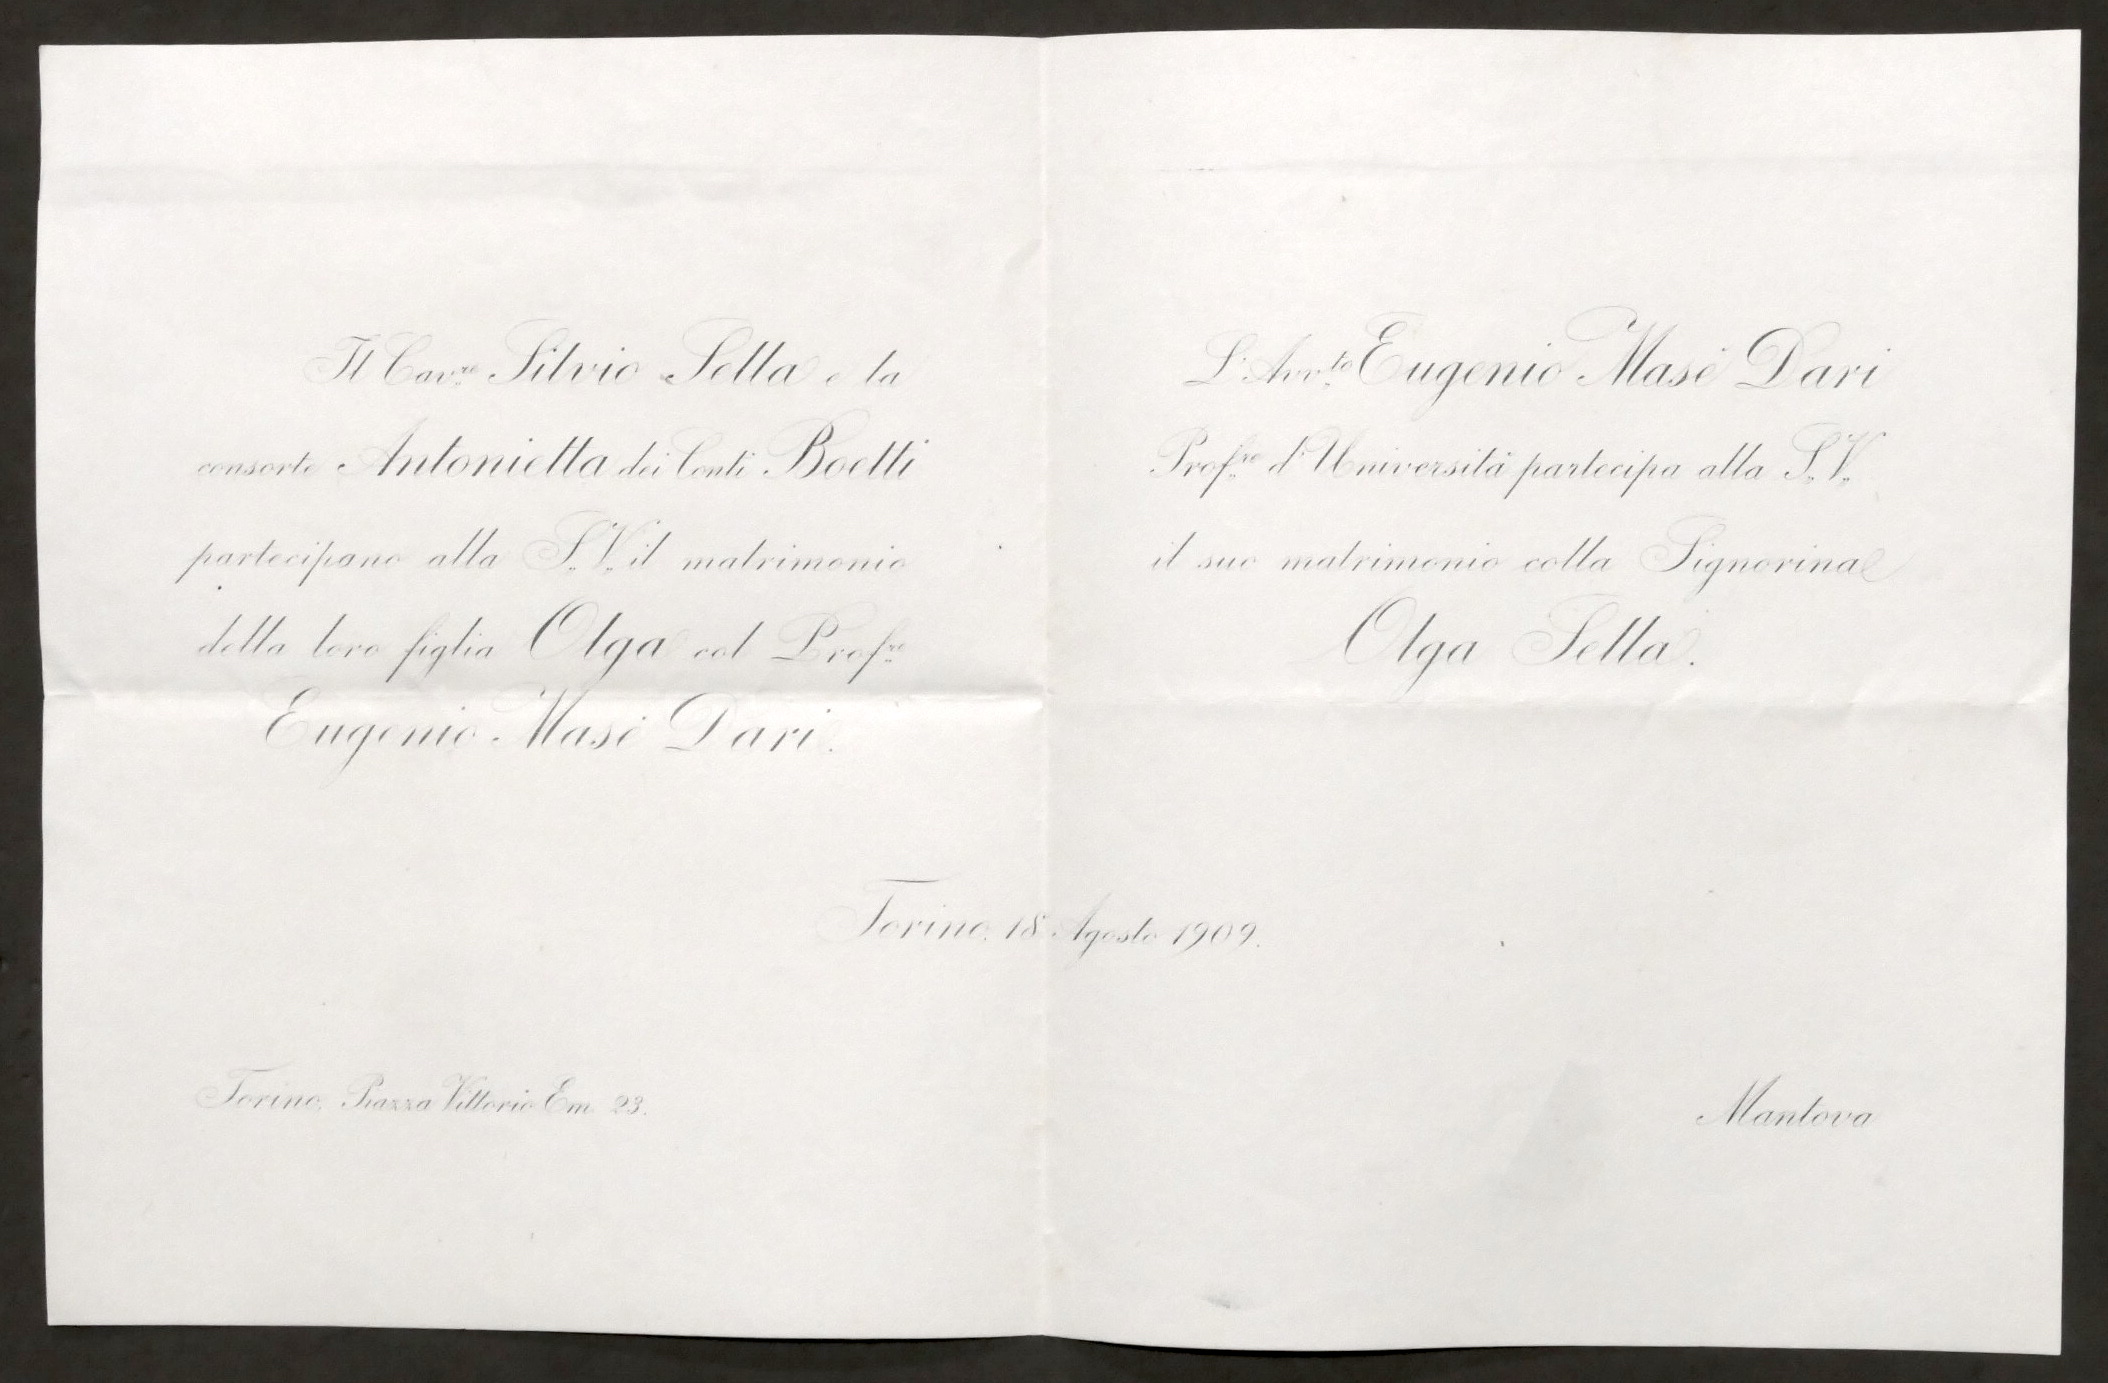 Il Cav.re Silvio Sella e la
consorte Antonietta dei Conti Boetti
partecipano alla S.V. il matrimonio
della loro figlia Olga col Prof.re
Eugenio Masé Dari.
L'Avv.to Eugenio Masé Dari
Prof.re d'Università partecipa alla S.V.
il suo matrimonio colla Signorina
Olga Sella.
Torino, 18 Agosto 1909.
Torino, Piazza Vittorio Em. 23.
Mantova